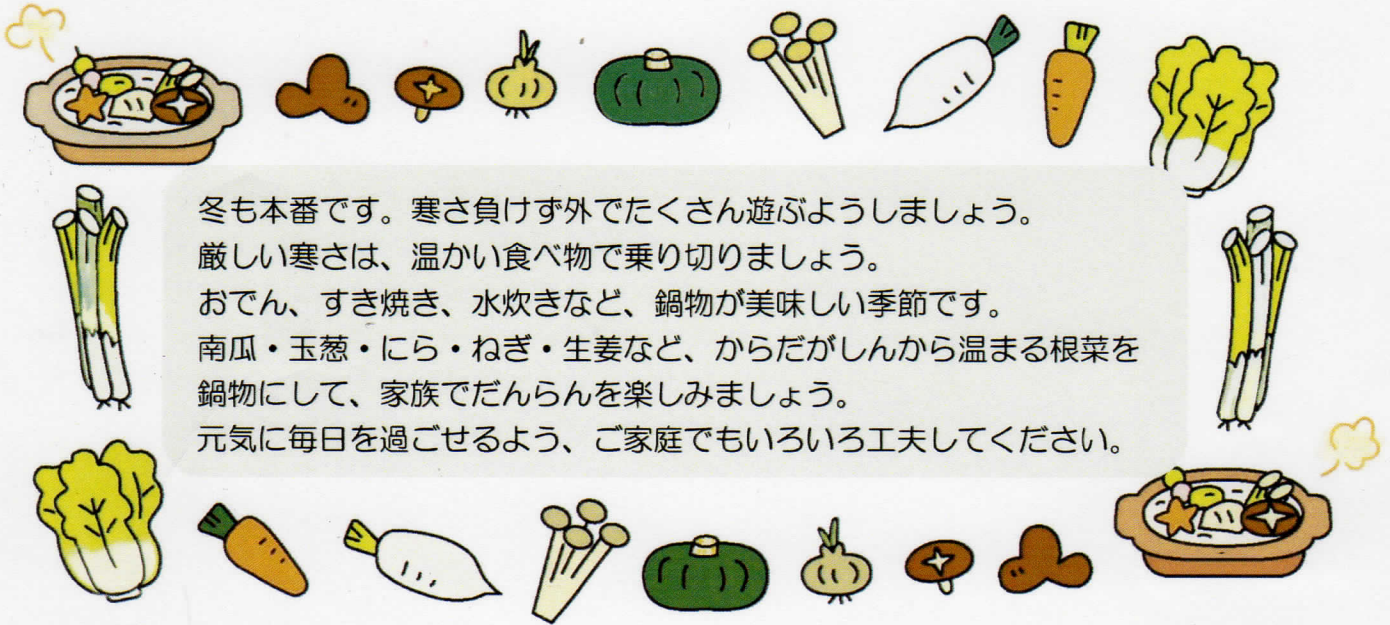 冬も本番です。寒さ負けず外でたくさん遊ぶようしましょう。
厳しい寒さは、温かい食べ物で乗り切りましょう。
おでん、すき焼き、水炊きなど、鍋物が美味しい季節です。
南瓜・玉葱・にら・ねぎ・生姜など、からだがしんから温まる根菜を
鍋物にして、家族でだんらんを楽しみましょう。
元気に毎日を過ごせるよう、ご家庭でもいろいろ工夫してください。